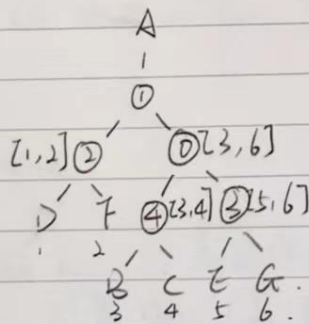 A
①
[1,2] ② ⓪ [3,6]
D F ④ [3,4] ③ [5,6]
1 2 B C E G.
3 4 5 6.